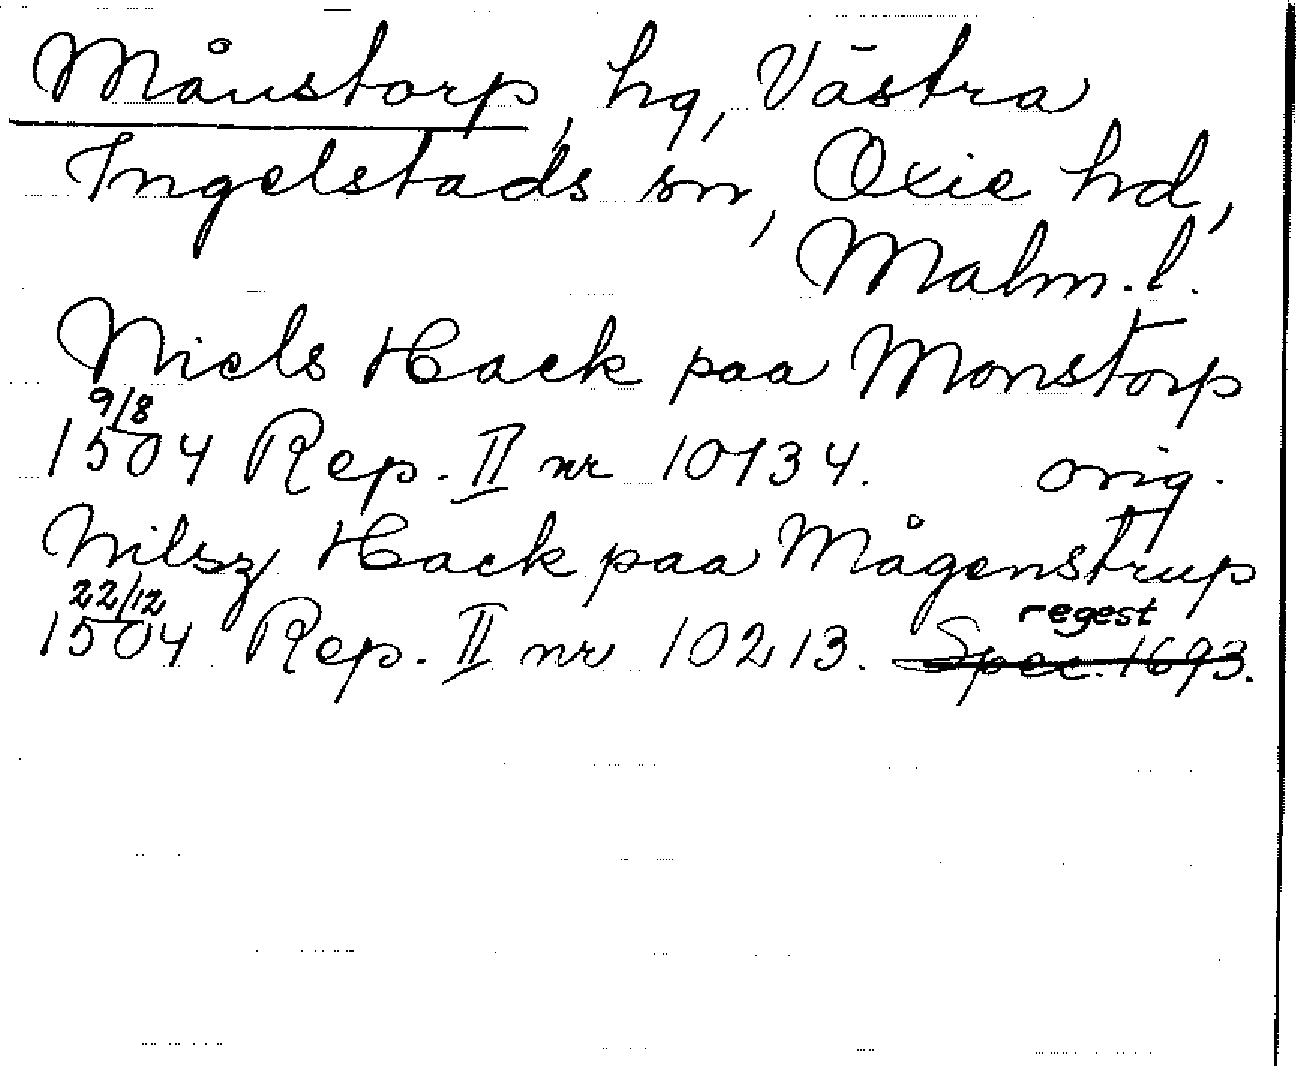 Månstorp, hg, Västra
Ingelstads sn, Oxie hd,
Malm. l.
Niels Hack paa Monstorp
9/8
1504 Rep. II nr 10134. orig.
Nilsz Hack paa Mågenstrup
22/12 regest
1504 Rep. II nr 10213. Spec. 1693.